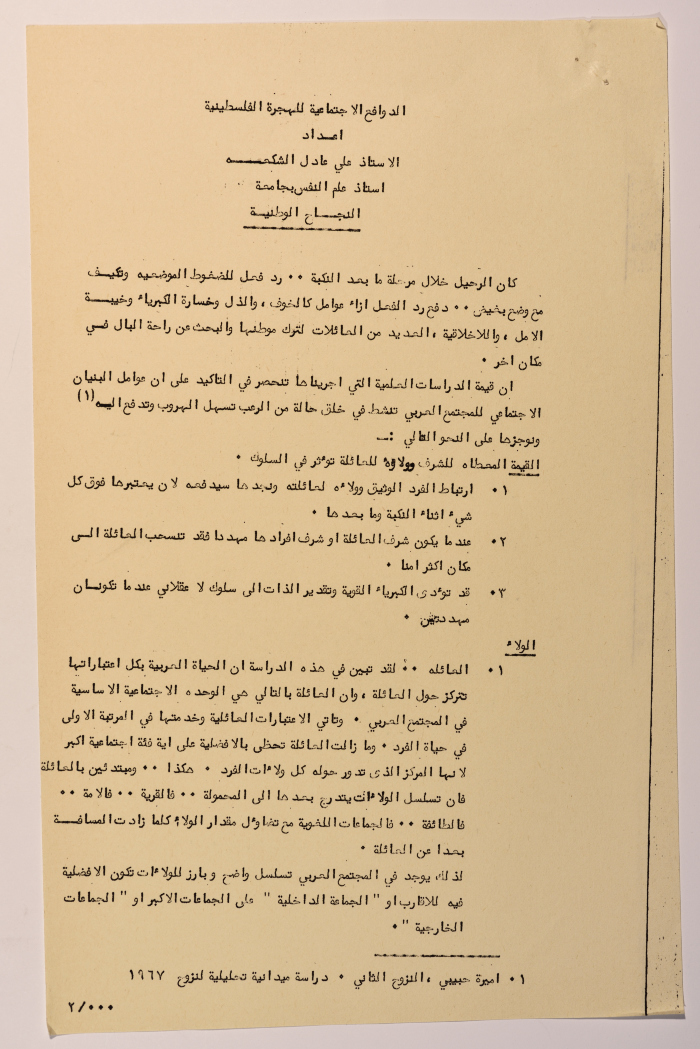 الدوافع الاجتماعية للهجرة الفلسطينية
اعداد
الاستاذ علي عادل الشكعـــه
استاذ علم النفس بجامعة
النجــاح الوطنيــة
كان الرحيل خلال مرحلة ما بعد النكبة ٠٠ رد فعل للضغوط الموضعيه وتكيــف
مع وضع بغيض ٠٠ دفع رد الفعل ازاء عوامل كالخوف ، والذل وخسارة الكبرياء وخيبــة
الامل ، واللااخلاقية ، العديد من العائلات لترك موطنها والبحث عن راحة البال فــي
مكان اخر ٠
ان قيمة الدراسات العلمية التي اجريناها تنحصر في التاكيد على ان عوامل البنيان
الاجتماعي للمجتمع العربي تنشط في خلق حالة من الرعب تسهل الهروب وتدفع اليــه (١)
ونوجزها على النحو التالي :ــ
القيمة المعطاه للشرف وولاؤه للعائلة توءثر في السلوك ٠
٠١ ارتباط الفرد الوثيق وولاءه لعائلته ونجدها سيدفعه لان يعتبرها فوق كل
شيء اثناء النكبة وما بعدها ٠
٠٢ عندما يكون شرف العائلة او شرف افرادها مهددا فقد تنسحب العائلة الــى
مكان اكثر امنا ٠
٠٣ قد توءدى الكبرياء القوية وتقدير الذات الى سلوك لا عقلاني عندما تكونــان
مهددتين ٠
الولاء
٠١ العائله ٠٠ لقد تبين في هذه الدراسة ان الحياة العربية بكل اعتباراتها
تتركز حول العائلة ، وان العائلة بالتالي هي الوحده الاجتماعية الاساسية
في المجتمع العربي ٠ وتاتي الاعتبارات العائلية وخدمتها في المرتبة الاولى
في حياة الفرد ٠ وما زالت العائلة تحظى بالافضلية على اية فئة اجتماعية اكبر
لانها المركز الذى تدور حوله كل ولاءات الفرد ٠ هكذا ٠٠ ومبتدئين بالعائلة
فان تسلسل الولاءات يتدرج بعدها الى الحمولة ٠٠ فالقرية ٠٠ فالامة ٠٠
فالطائفة ٠٠ فالجماعات اللغوية مع تضاوءل مقدار الولاء كلما زادت المسافــة
بعدا عن العائلة ٠
لذلك يوجد في المجتمع العربي تسلسل واضح وبارز للولاءات تكون الافضلية
فيه للاقارب او " الجماعة الداخلية " على الجماعات الاكبر او " الجماعات
الخارجية " ٠
٠١ اميرة حبيبي ، النزوح الثاني ٠ دراسة ميدانية تحليلية لنزوح ١٩٦٧
٢/٠٠٠